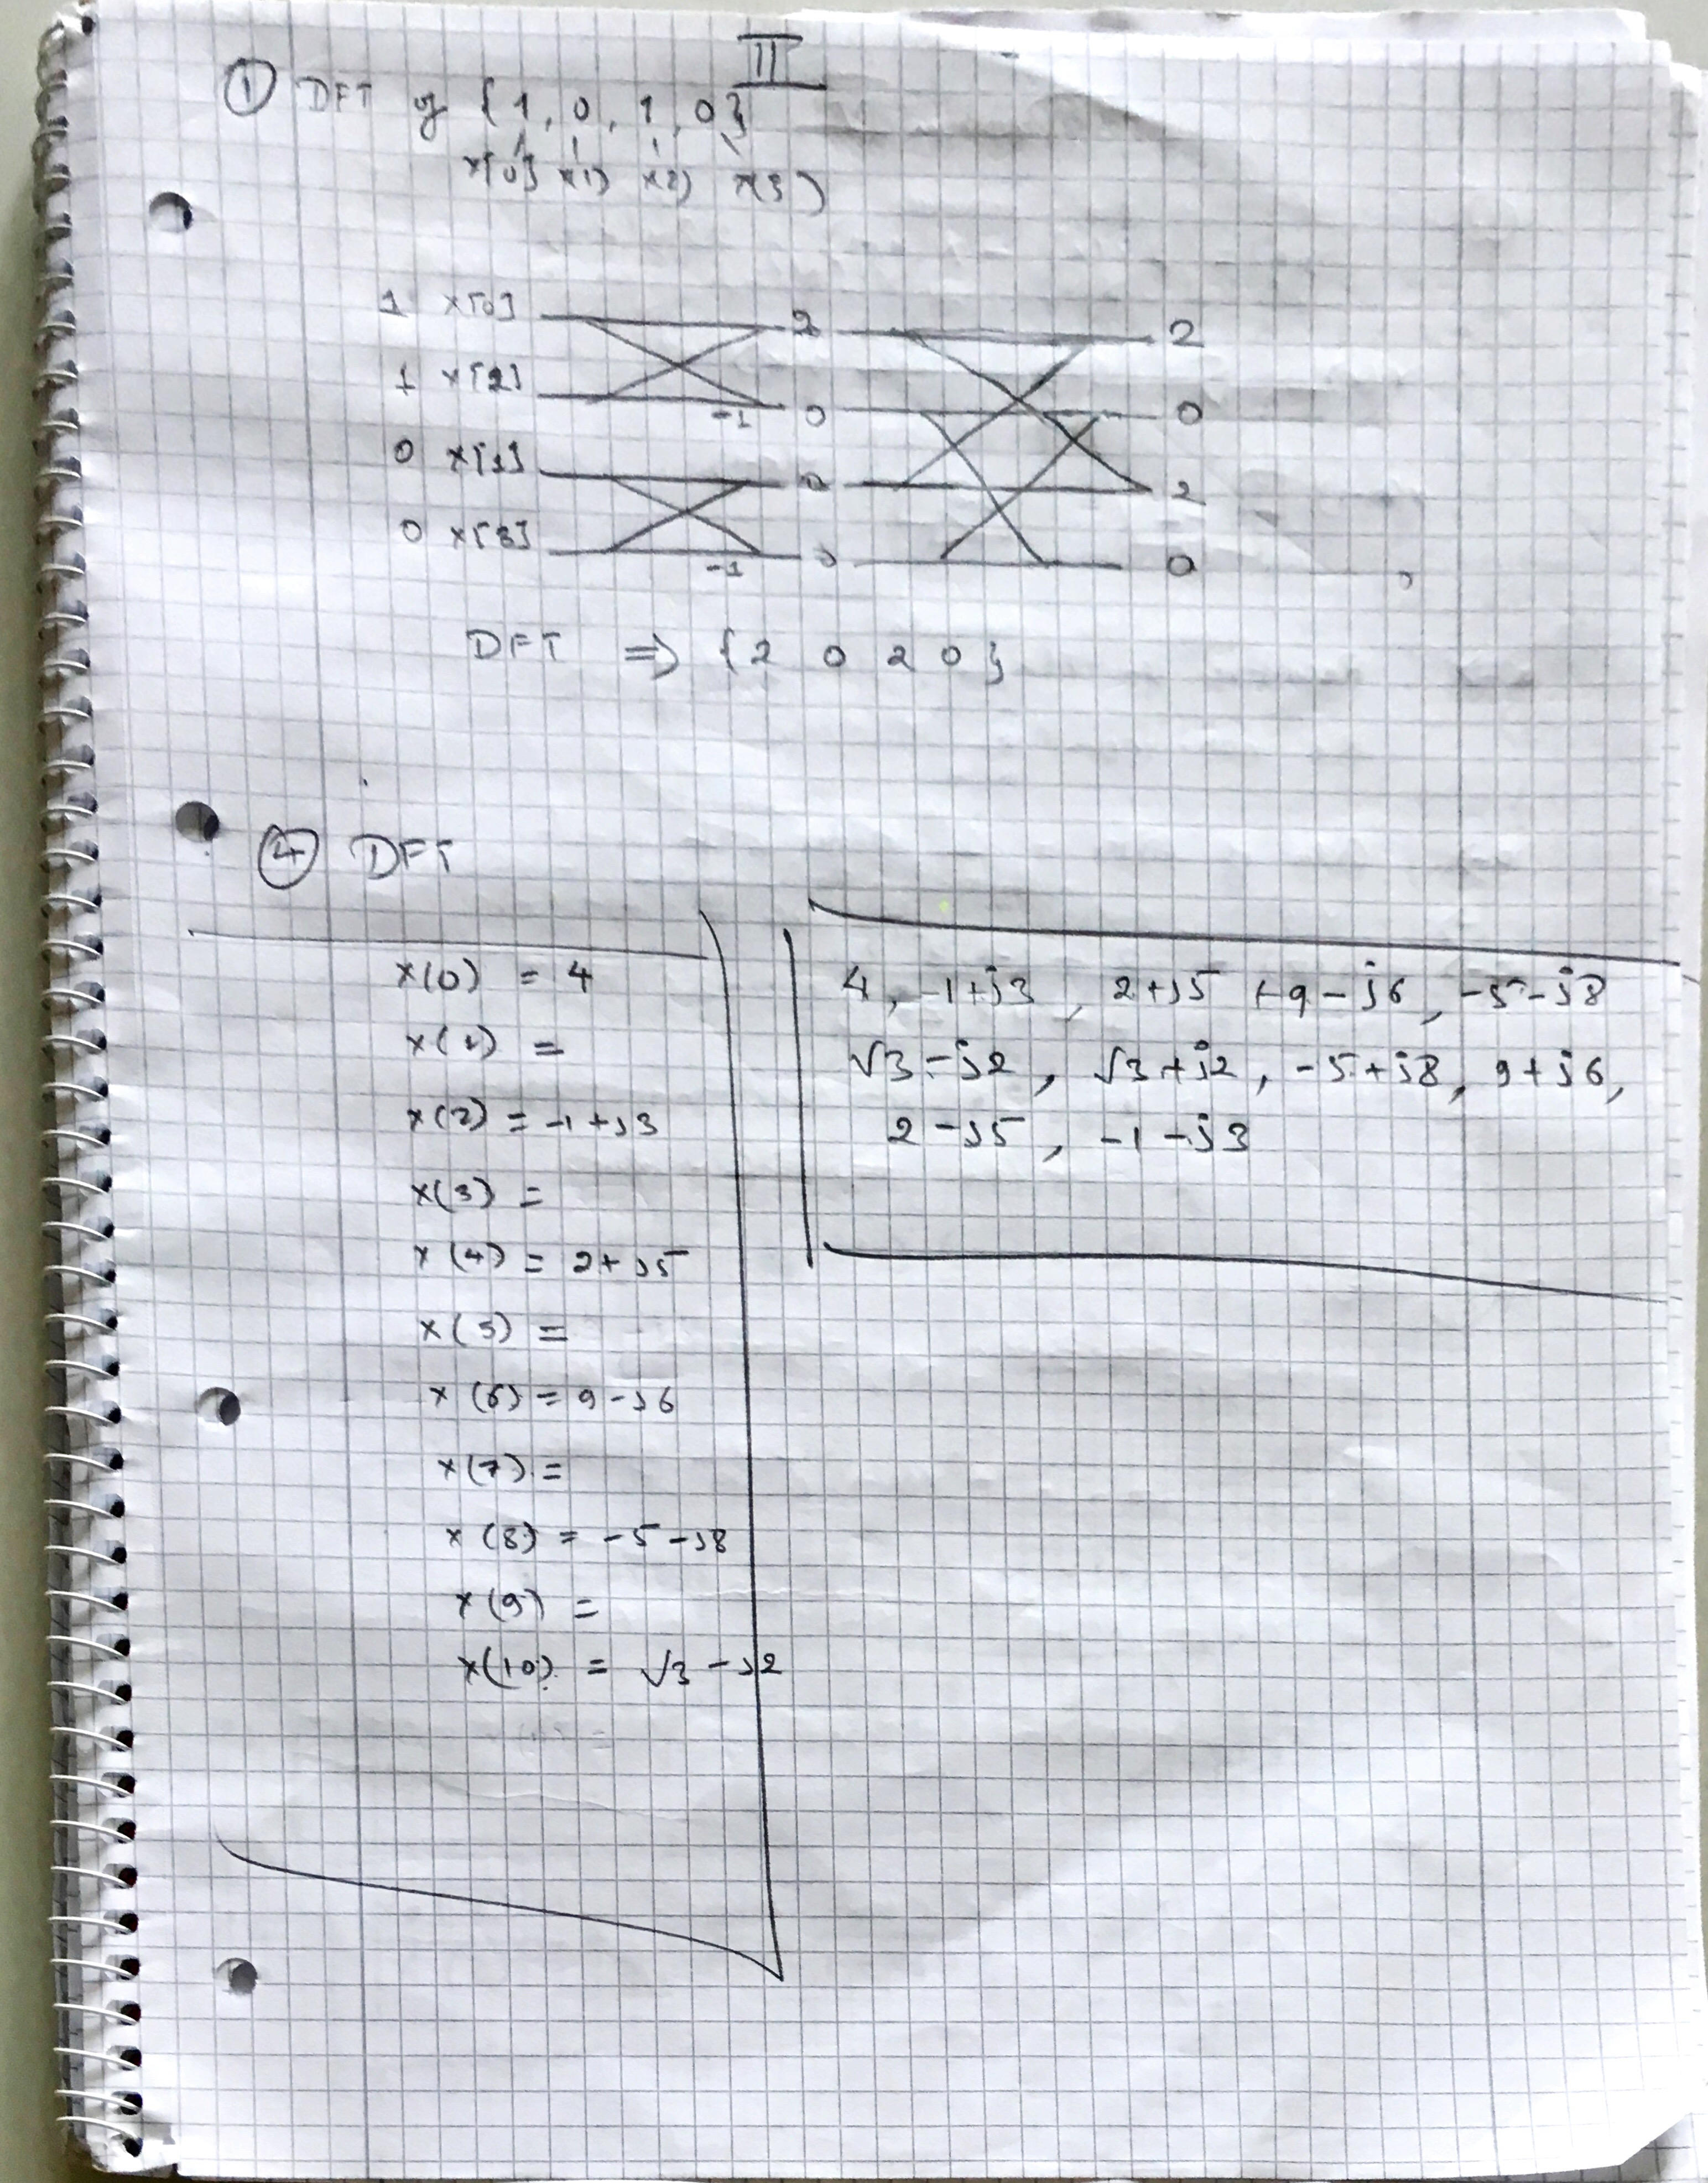 II
① DFT of {1, 0, 1, 0}
x[0] x1) x2) x(3)
1 x[0] 2 2
1 x[2] -1 0 0
0 x[1] 0 2
0 x[3] -1 0 0
DFT ⇒ {2 0 2 0}
④ DFT
x(0) = 4
x(1) =
x(2) = -1+j3
x(3) =
x(4) = 2+j5
x(5) =
x(6) = 9-j6
x(7) =
x(8) = -5-j8
x(9) =
x(10) = √3-j2
4, -1+j3, 2+j5, 9-j6, -5-j8
√3-j2, √3+j2, -5+j8, 9+j6,
2-j5, -1-j3